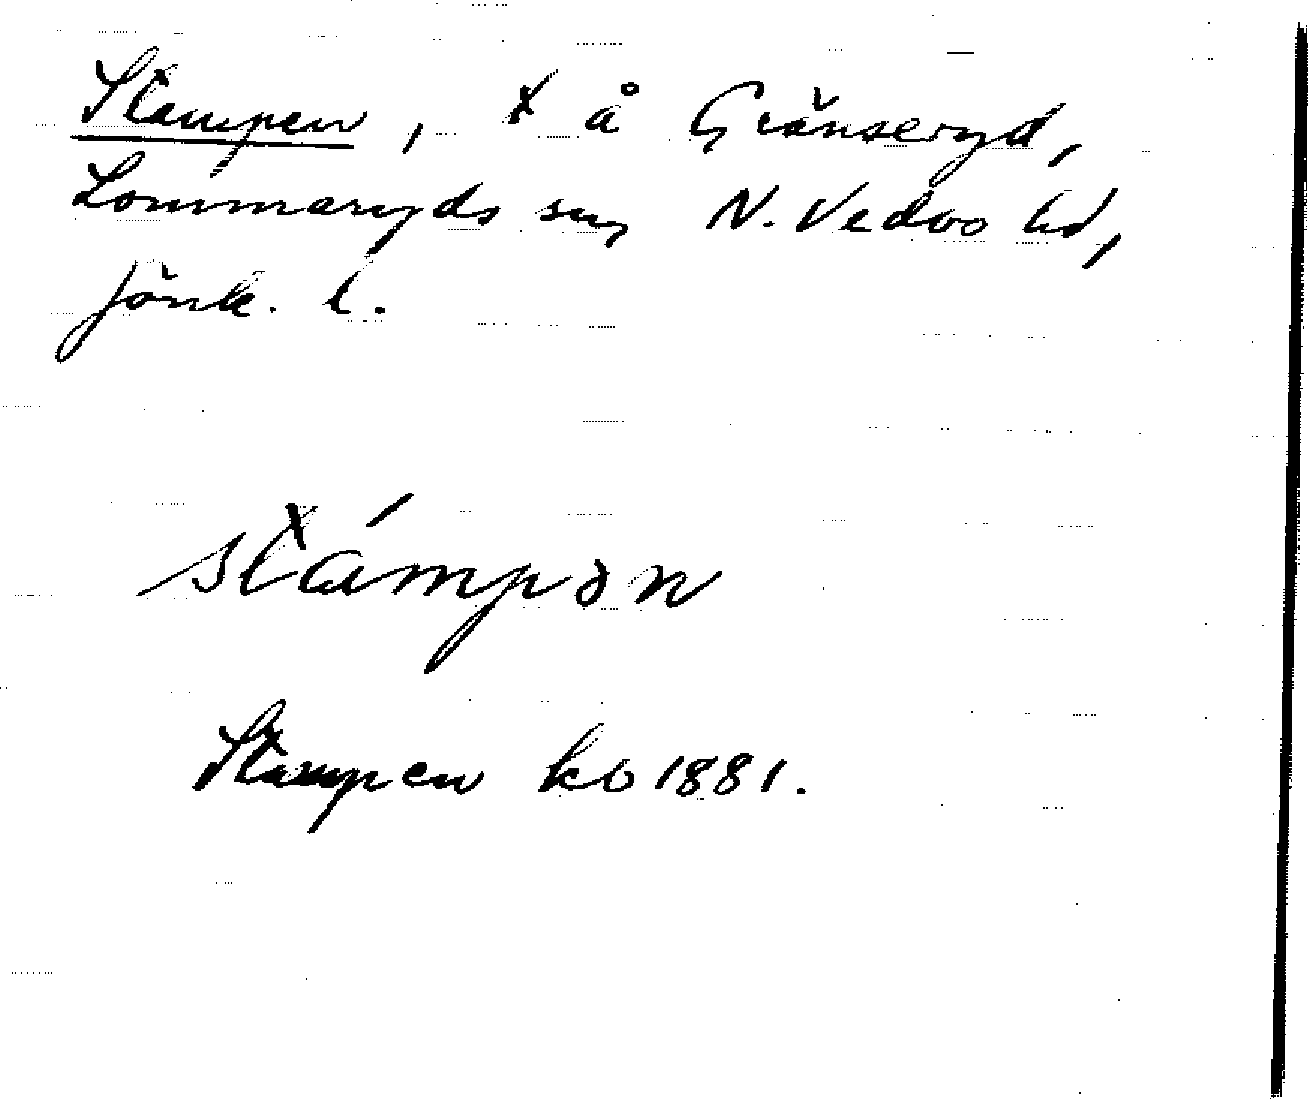 Stampen, x å Gränseryd,
Lommaryds sn, N. Vedbo hd,
Jönk. l.
stámpən
Stampen kb 1881.